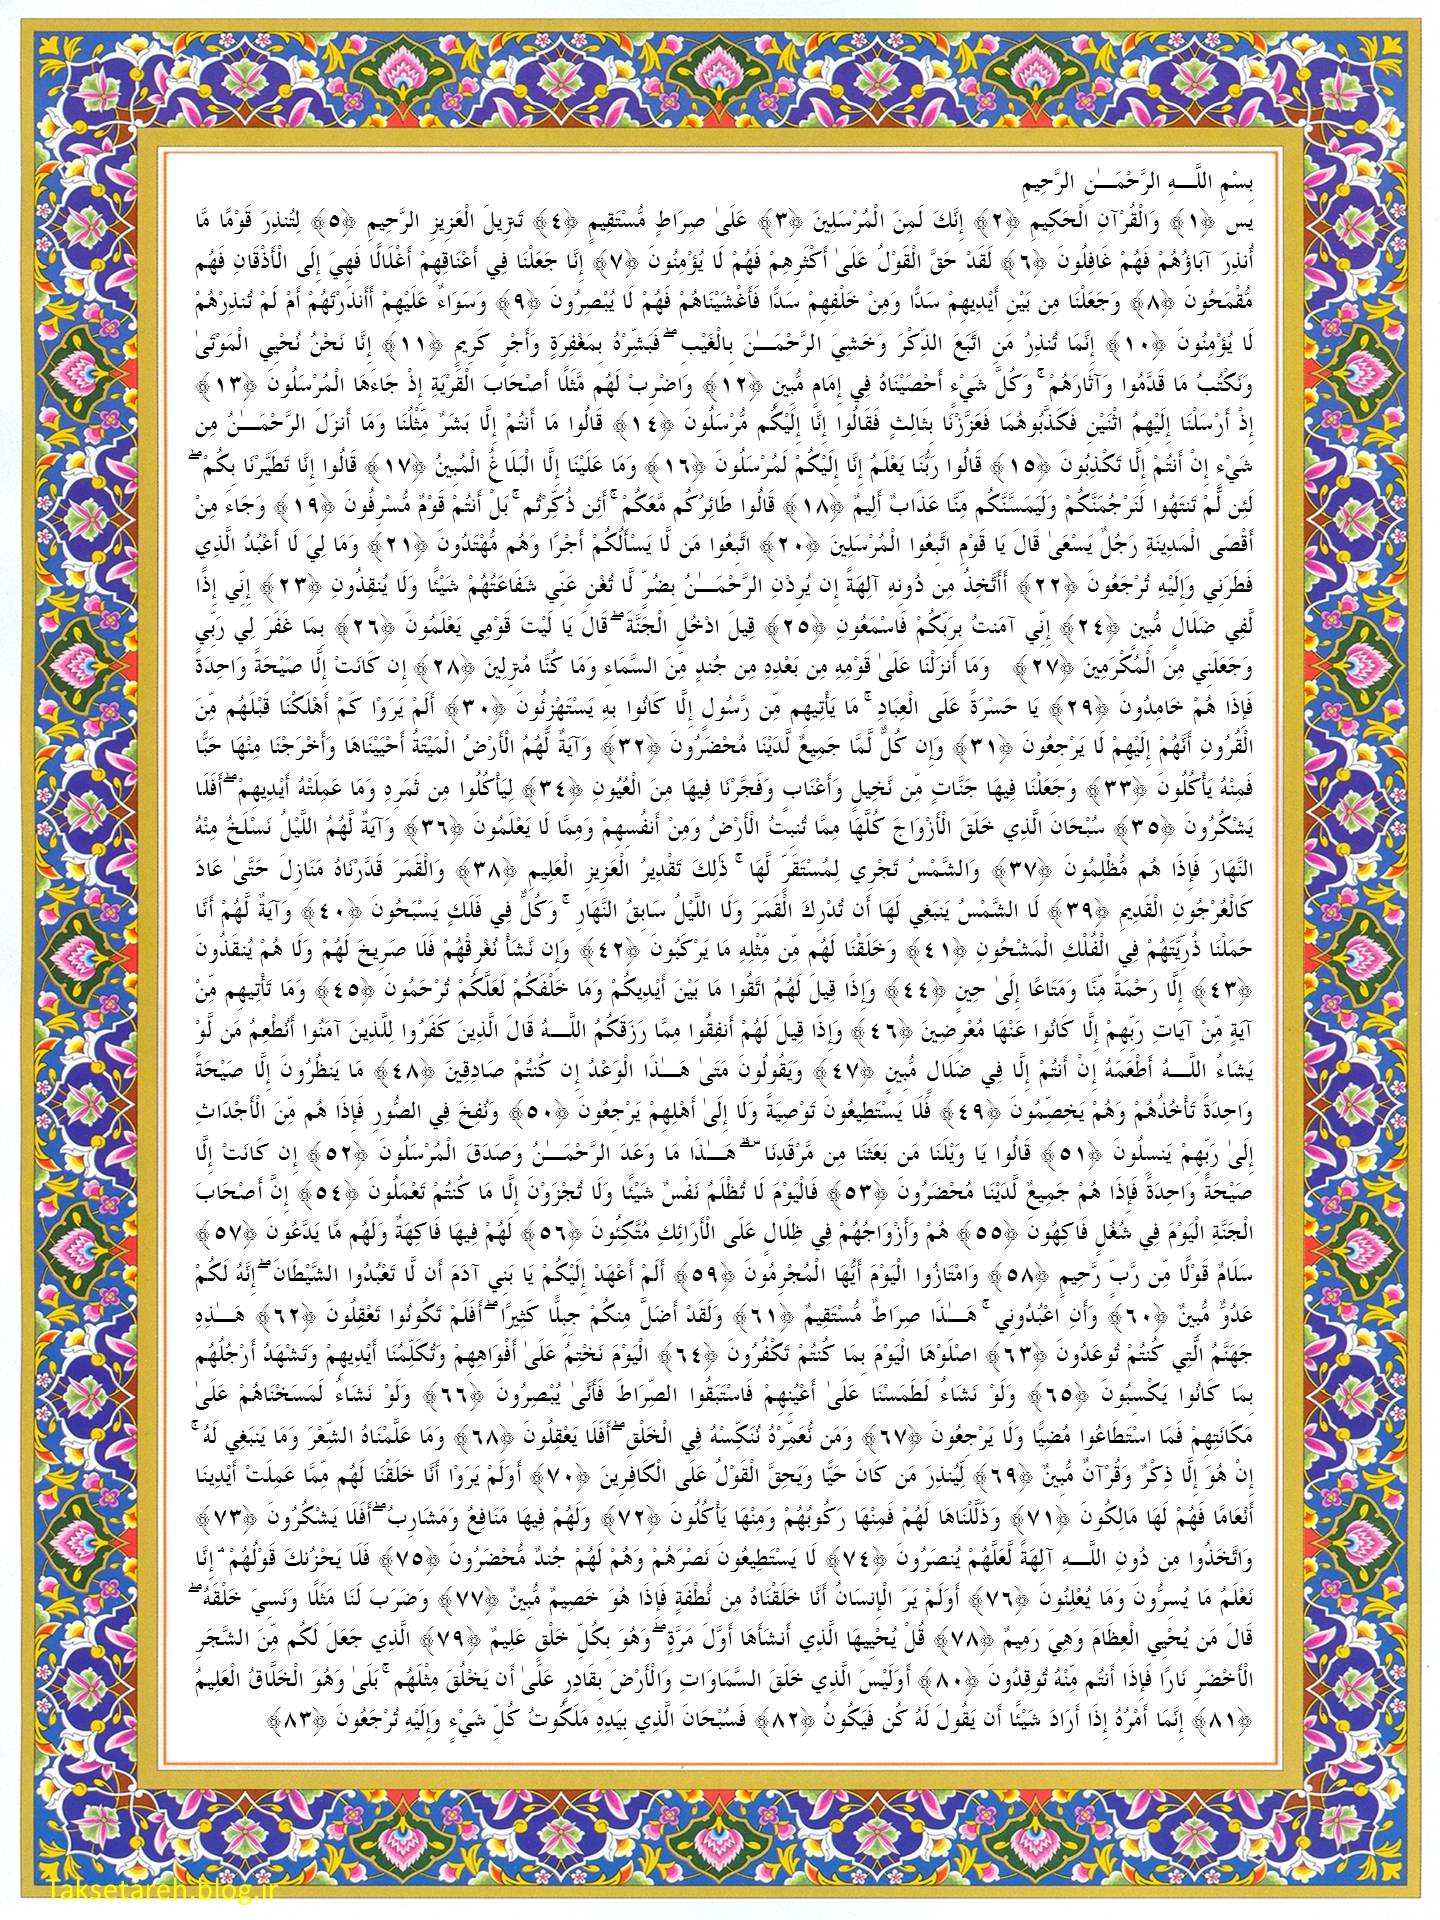 بِسْمِ اللَّـهِ الرَّحْمَـٰنِ الرَّحِيمِ
يس ﴿١﴾ وَالْقُرْآنِ الْحَكِيمِ ﴿٢﴾ إِنَّكَ لَمِنَ الْمُرْسَلِينَ ﴿٣﴾ عَلَىٰ صِرَاطٍ مُّسْتَقِيمٍ ﴿٤﴾ تَنزِيلَ الْعَزِيزِ الرَّحِيمِ ﴿٥﴾ لِتُنذِرَ قَوْمًا مَّا
أُنذِرَ آبَاؤُهُمْ فَهُمْ غَافِلُونَ ﴿٦﴾ لَقَدْ حَقَّ الْقَوْلُ عَلَىٰ أَكْثَرِهِمْ فَهُمْ لَا يُؤْمِنُونَ ﴿٧﴾ إِنَّا جَعَلْنَا فِي أَعْنَاقِهِمْ أَغْلَالًا فَهِيَ إِلَى الْأَذْقَانِ فَهُم
مُّقْمَحُونَ ﴿٨﴾ وَجَعَلْنَا مِن بَيْنِ أَيْدِيهِمْ سَدًّا وَمِنْ خَلْفِهِمْ سَدًّا فَأَغْشَيْنَاهُمْ فَهُمْ لَا يُبْصِرُونَ ﴿٩﴾ وَسَوَاءٌ عَلَيْهِمْ أَأَنذَرْتَهُمْ أَمْ لَمْ تُنذِرْهُمْ
لَا يُؤْمِنُونَ ﴿١٠﴾ إِنَّمَا تُنذِرُ مَنِ اتَّبَعَ الذِّكْرَ وَخَشِيَ الرَّحْمَـٰنَ بِالْغَيْبِ ۖ فَبَشِّرْهُ بِمَغْفِرَةٍ وَأَجْرٍ كَرِيمٍ ﴿١١﴾ إِنَّا نَحْنُ نُحْيِي الْمَوْتَىٰ
وَنَكْتُبُ مَا قَدَّمُوا وَآثَارَهُمْ ۚ وَكُلَّ شَيْءٍ أَحْصَيْنَاهُ فِي إِمَامٍ مُّبِينٍ ﴿١٢﴾ وَاضْرِبْ لَهُم مَّثَلًا أَصْحَابَ الْقَرْيَةِ إِذْ جَاءَهَا الْمُرْسَلُونَ ﴿١٣﴾
إِذْ أَرْسَلْنَا إِلَيْهِمُ اثْنَيْنِ فَكَذَّبُوهُمَا فَعَزَّزْنَا بِثَالِثٍ فَقَالُوا إِنَّا إِلَيْكُم مُّرْسَلُونَ ﴿١٤﴾ قَالُوا مَا أَنتُمْ إِلَّا بَشَرٌ مِّثْلُنَا وَمَا أَنزَلَ الرَّحْمَـٰنُ مِن
شَيْءٍ إِنْ أَنتُمْ إِلَّا تَكْذِبُونَ ﴿١٥﴾ قَالُوا رَبُّنَا يَعْلَمُ إِنَّا إِلَيْكُمْ لَمُرْسَلُونَ ﴿١٦﴾ وَمَا عَلَيْنَا إِلَّا الْبَلَاغُ الْمُبِينُ ﴿١٧﴾ قَالُوا إِنَّا تَطَيَّرْنَا بِكُمْ ۖ
لَئِن لَّمْ تَنتَهُوا لَنَرْجُمَنَّكُمْ وَلَيَمَسَّنَّكُم مِّنَّا عَذَابٌ أَلِيمٌ ﴿١٨﴾ قَالُوا طَائِرُكُم مَّعَكُمْ ۚ أَئِن ذُكِّرْتُم ۚ بَلْ أَنتُمْ قَوْمٌ مُّسْرِفُونَ ﴿١٩﴾ وَجَاءَ مِنْ
أَقْصَى الْمَدِينَةِ رَجُلٌ يَسْعَىٰ قَالَ يَا قَوْمِ اتَّبِعُوا الْمُرْسَلِينَ ﴿٢٠﴾ اتَّبِعُوا مَن لَّا يَسْأَلُكُمْ أَجْرًا وَهُم مُّهْتَدُونَ ﴿٢١﴾ وَمَا لِيَ لَا أَعْبُدُ الَّذِي
فَطَرَنِي وَإِلَيْهِ تُرْجَعُونَ ﴿٢٢﴾ أَأَتَّخِذُ مِن دُونِهِ آلِهَةً إِن يُرِدْنِ الرَّحْمَـٰنُ بِضُرٍّ لَّا تُغْنِ عَنِّي شَفَاعَتُهُمْ شَيْئًا وَلَا يُنقِذُونِ ﴿٢٣﴾ إِنِّي إِذًا
لَّفِي ضَلَالٍ مُّبِينٍ ﴿٢٤﴾ إِنِّي آمَنتُ بِرَبِّكُمْ فَاسْمَعُونِ ﴿٢٥﴾ قِيلَ ادْخُلِ الْجَنَّةَ ۖ قَالَ يَا لَيْتَ قَوْمِي يَعْلَمُونَ ﴿٢٦﴾ بِمَا غَفَرَ لِي رَبِّي
وَجَعَلَنِي مِنَ الْمُكْرَمِينَ ﴿٢٧﴾ وَمَا أَنزَلْنَا عَلَىٰ قَوْمِهِ مِن بَعْدِهِ مِن جُندٍ مِّنَ السَّمَاءِ وَمَا كُنَّا مُنزِلِينَ ﴿٢٨﴾ إِن كَانَتْ إِلَّا صَيْحَةً وَاحِدَةً
فَإِذَا هُمْ خَامِدُونَ ﴿٢٩﴾ يَا حَسْرَةً عَلَى الْعِبَادِ ۚ مَا يَأْتِيهِم مِّن رَّسُولٍ إِلَّا كَانُوا بِهِ يَسْتَهْزِئُونَ ﴿٣٠﴾ أَلَمْ يَرَوْا كَمْ أَهْلَكْنَا قَبْلَهُم مِّنَ
الْقُرُونِ أَنَّهُمْ إِلَيْهِمْ لَا يَرْجِعُونَ ﴿٣١﴾ وَإِن كُلٌّ لَّمَّا جَمِيعٌ لَّدَيْنَا مُحْضَرُونَ ﴿٣٢﴾ وَآيَةٌ لَّهُمُ الْأَرْضُ الْمَيْتَةُ أَحْيَيْنَاهَا وَأَخْرَجْنَا مِنْهَا حَبًّا
فَمِنْهُ يَأْكُلُونَ ﴿٣٣﴾ وَجَعَلْنَا فِيهَا جَنَّاتٍ مِّن نَّخِيلٍ وَأَعْنَابٍ وَفَجَّرْنَا فِيهَا مِنَ الْعُيُونِ ﴿٣٤﴾ لِيَأْكُلُوا مِن ثَمَرِهِ وَمَا عَمِلَتْهُ أَيْدِيهِمْ ۖ أَفَلَا
يَشْكُرُونَ ﴿٣٥﴾ سُبْحَانَ الَّذِي خَلَقَ الْأَزْوَاجَ كُلَّهَا مِمَّا تُنبِتُ الْأَرْضُ وَمِنْ أَنفُسِهِمْ وَمِمَّا لَا يَعْلَمُونَ ﴿٣٦﴾ وَآيَةٌ لَّهُمُ اللَّيْلُ نَسْلَخُ مِنْهُ
النَّهَارَ فَإِذَا هُم مُّظْلِمُونَ ﴿٣٧﴾ وَالشَّمْسُ تَجْرِي لِمُسْتَقَرٍّ لَّهَا ۚ ذَٰلِكَ تَقْدِيرُ الْعَزِيزِ الْعَلِيمِ ﴿٣٨﴾ وَالْقَمَرَ قَدَّرْنَاهُ مَنَازِلَ حَتَّىٰ عَادَ
كَالْعُرْجُونِ الْقَدِيمِ ﴿٣٩﴾ لَا الشَّمْسُ يَنبَغِي لَهَا أَن تُدْرِكَ الْقَمَرَ وَلَا اللَّيْلُ سَابِقُ النَّهَارِ ۚ وَكُلٌّ فِي فَلَكٍ يَسْبَحُونَ ﴿٤٠﴾ وَآيَةٌ لَّهُمْ أَنَّا
حَمَلْنَا ذُرِّيَّتَهُمْ فِي الْفُلْكِ الْمَشْحُونِ ﴿٤١﴾ وَخَلَقْنَا لَهُم مِّن مِّثْلِهِ مَا يَرْكَبُونَ ﴿٤٢﴾ وَإِن نَّشَأْ نُغْرِقْهُمْ فَلَا صَرِيخَ لَهُمْ وَلَا هُمْ يُنقَذُونَ
﴿٤٣﴾ إِلَّا رَحْمَةً مِّنَّا وَمَتَاعًا إِلَىٰ حِينٍ ﴿٤٤﴾ وَإِذَا قِيلَ لَهُمُ اتَّقُوا مَا بَيْنَ أَيْدِيكُمْ وَمَا خَلْفَكُمْ لَعَلَّكُمْ تُرْحَمُونَ ﴿٤٥﴾ وَمَا تَأْتِيهِم مِّنْ
آيَةٍ مِّنْ آيَاتِ رَبِّهِمْ إِلَّا كَانُوا عَنْهَا مُعْرِضِينَ ﴿٤٦﴾ وَإِذَا قِيلَ لَهُمْ أَنفِقُوا مِمَّا رَزَقَكُمُ اللَّـهُ قَالَ الَّذِينَ كَفَرُوا لِلَّذِينَ آمَنُوا أَنُطْعِمُ مَن لَّوْ
يَشَاءُ اللَّـهُ أَطْعَمَهُ إِنْ أَنتُمْ إِلَّا فِي ضَلَالٍ مُّبِينٍ ﴿٤٧﴾ وَيَقُولُونَ مَتَىٰ هَـٰذَا الْوَعْدُ إِن كُنتُمْ صَادِقِينَ ﴿٤٨﴾ مَا يَنظُرُونَ إِلَّا صَيْحَةً
وَاحِدَةً تَأْخُذُهُمْ وَهُمْ يَخِصِّمُونَ ﴿٤٩﴾ فَلَا يَسْتَطِيعُونَ تَوْصِيَةً وَلَا إِلَىٰ أَهْلِهِمْ يَرْجِعُونَ ﴿٥٠﴾ وَنُفِخَ فِي الصُّورِ فَإِذَا هُم مِّنَ الْأَجْدَاثِ
إِلَىٰ رَبِّهِمْ يَنسِلُونَ ﴿٥١﴾ قَالُوا يَا وَيْلَنَا مَن بَعَثَنَا مِن مَّرْقَدِنَا ۜ ۗ هَـٰذَا مَا وَعَدَ الرَّحْمَـٰنُ وَصَدَقَ الْمُرْسَلُونَ ﴿٥٢﴾ إِن كَانَتْ إِلَّا
صَيْحَةً وَاحِدَةً فَإِذَا هُمْ جَمِيعٌ لَّدَيْنَا مُحْضَرُونَ ﴿٥٣﴾ فَالْيَوْمَ لَا تُظْلَمُ نَفْسٌ شَيْئًا وَلَا تُجْزَوْنَ إِلَّا مَا كُنتُمْ تَعْمَلُونَ ﴿٥٤﴾ إِنَّ أَصْحَابَ
الْجَنَّةِ الْيَوْمَ فِي شُغُلٍ فَاكِهُونَ ﴿٥٥﴾ هُمْ وَأَزْوَاجُهُمْ فِي ظِلَالٍ عَلَى الْأَرَائِكِ مُتَّكِئُونَ ﴿٥٦﴾ لَهُمْ فِيهَا فَاكِهَةٌ وَلَهُم مَّا يَدَّعُونَ ﴿٥٧﴾
سَلَامٌ قَوْلًا مِّن رَّبٍّ رَّحِيمٍ ﴿٥٨﴾ وَامْتَازُوا الْيَوْمَ أَيُّهَا الْمُجْرِمُونَ ﴿٥٩﴾ أَلَمْ أَعْهَدْ إِلَيْكُمْ يَا بَنِي آدَمَ أَن لَّا تَعْبُدُوا الشَّيْطَانَ ۖ إِنَّهُ لَكُمْ
عَدُوٌّ مُّبِينٌ ﴿٦٠﴾ وَأَنِ اعْبُدُونِي ۚ هَـٰذَا صِرَاطٌ مُّسْتَقِيمٌ ﴿٦١﴾ وَلَقَدْ أَضَلَّ مِنكُمْ جِبِلًّا كَثِيرًا ۖ أَفَلَمْ تَكُونُوا تَعْقِلُونَ ﴿٦٢﴾ هَـٰذِهِ
جَهَنَّمُ الَّتِي كُنتُمْ تُوعَدُونَ ﴿٦٣﴾ اصْلَوْهَا الْيَوْمَ بِمَا كُنتُمْ تَكْفُرُونَ ﴿٦٤﴾ الْيَوْمَ نَخْتِمُ عَلَىٰ أَفْوَاهِهِمْ وَتُكَلِّمُنَا أَيْدِيهِمْ وَتَشْهَدُ أَرْجُلُهُم
بِمَا كَانُوا يَكْسِبُونَ ﴿٦٥﴾ وَلَوْ نَشَاءُ لَطَمَسْنَا عَلَىٰ أَعْيُنِهِمْ فَاسْتَبَقُوا الصِّرَاطَ فَأَنَّىٰ يُبْصِرُونَ ﴿٦٦﴾ وَلَوْ نَشَاءُ لَمَسَخْنَاهُمْ عَلَىٰ
مَكَانَتِهِمْ فَمَا اسْتَطَاعُوا مُضِيًّا وَلَا يَرْجِعُونَ ﴿٦٧﴾ وَمَن نُّعَمِّرْهُ نُنَكِّسْهُ فِي الْخَلْقِ ۖ أَفَلَا يَعْقِلُونَ ﴿٦٨﴾ وَمَا عَلَّمْنَاهُ الشِّعْرَ وَمَا يَنبَغِي لَهُ ۚ
إِنْ هُوَ إِلَّا ذِكْرٌ وَقُرْآنٌ مُّبِينٌ ﴿٦٩﴾ لِّيُنذِرَ مَن كَانَ حَيًّا وَيَحِقَّ الْقَوْلُ عَلَى الْكَافِرِينَ ﴿٧٠﴾ أَوَلَمْ يَرَوْا أَنَّا خَلَقْنَا لَهُم مِّمَّا عَمِلَتْ أَيْدِينَا
أَنْعَامًا فَهُمْ لَهَا مَالِكُونَ ﴿٧١﴾ وَذَلَّلْنَاهَا لَهُمْ فَمِنْهَا رَكُوبُهُمْ وَمِنْهَا يَأْكُلُونَ ﴿٧٢﴾ وَلَهُمْ فِيهَا مَنَافِعُ وَمَشَارِبُ ۖ أَفَلَا يَشْكُرُونَ ﴿٧٣﴾
وَاتَّخَذُوا مِن دُونِ اللَّـهِ آلِهَةً لَّعَلَّهُمْ يُنصَرُونَ ﴿٧٤﴾ لَا يَسْتَطِيعُونَ نَصْرَهُمْ وَهُمْ لَهُمْ جُندٌ مُّحْضَرُونَ ﴿٧٥﴾ فَلَا يَحْزُنكَ قَوْلُهُمْ ۘ إِنَّا
نَعْلَمُ مَا يُسِرُّونَ وَمَا يُعْلِنُونَ ﴿٧٦﴾ أَوَلَمْ يَرَ الْإِنسَانُ أَنَّا خَلَقْنَاهُ مِن نُّطْفَةٍ فَإِذَا هُوَ خَصِيمٌ مُّبِينٌ ﴿٧٧﴾ وَضَرَبَ لَنَا مَثَلًا وَنَسِيَ خَلْقَهُ ۖ
قَالَ مَن يُحْيِي الْعِظَامَ وَهِيَ رَمِيمٌ ﴿٧٨﴾ قُلْ يُحْيِيهَا الَّذِي أَنشَأَهَا أَوَّلَ مَرَّةٍ ۖ وَهُوَ بِكُلِّ خَلْقٍ عَلِيمٌ ﴿٧٩﴾ الَّذِي جَعَلَ لَكُم مِّنَ الشَّجَرِ
الْأَخْضَرِ نَارًا فَإِذَا أَنتُم مِّنْهُ تُوقِدُونَ ﴿٨٠﴾ أَوَلَيْسَ الَّذِي خَلَقَ السَّمَاوَاتِ وَالْأَرْضَ بِقَادِرٍ عَلَىٰ أَن يَخْلُقَ مِثْلَهُم ۚ بَلَىٰ وَهُوَ الْخَلَّاقُ الْعَلِيمُ
﴿٨١﴾ إِنَّمَا أَمْرُهُ إِذَا أَرَادَ شَيْئًا أَن يَقُولَ لَهُ كُن فَيَكُونُ ﴿٨٢﴾ فَسُبْحَانَ الَّذِي بِيَدِهِ مَلَكُوتُ كُلِّ شَيْءٍ وَإِلَيْهِ تُرْجَعُونَ ﴿٨٣﴾
Taksetareh.blog.ir